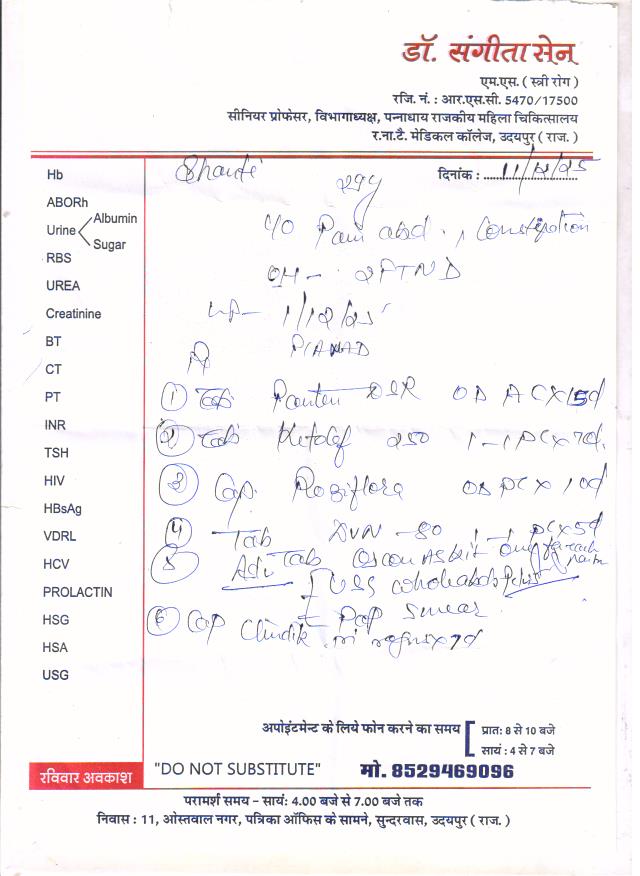 डॉ. संगीता सेन
एम.एस. ( स्त्री रोग )
रजि. नं. : आर.एस.सी. 5470/17500
सीनियर प्रोफेसर, विभागाध्यक्ष, पन्नाधाय राजकीय महिला चिकित्सालय
र.ना.टै. मेडिकल कॉलेज, उदयपुर ( राज. )
दिनांक : 11/12/25
Hb
ABORh
Urine Albumin
Sugar
RBS
UREA
Creatinine
BT
CT
PT
INR
TSH
HIV
HBsAg
VDRL
HCV
PROLACTIN
HSG
HSA
USG
29y
c/o Pain abd. , Constipation
OH - 2FTND
LMP - 1/12/25
P/A NAD
① Tab DSR OD AC X 15d
② Tab 250 1-1 PC x 7d.
③ Cap. OD PC x 10d
④ Tab - 80 1-1 PC X 5d
5 Tab
Adv USG whole abd
Pap Smear
⑥ Cap x 7d
अपोइंटमेन्ट के लिये फोन करने का समय
प्रात: 8 से 10 बजे
सायं : 4 से 7 बजे
रविवार अवकाश
"DO NOT SUBSTITUTE"
मो. 8529469096
परामर्श समय – सायं: 4.00 बजे से 7.00 बजे तक
निवास : 11, ओस्तवाल नगर, पत्रिका ऑफिस के सामने, सुन्दरवास, उदयपुर ( राज. )